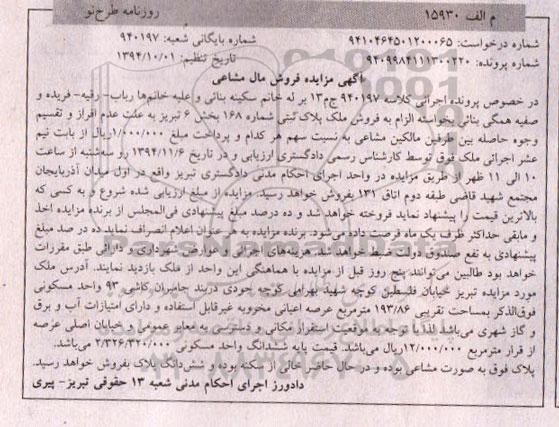 م الف ۱۵۹۳۰
روزنامه طرح‌نو
شماره درخواست: ۹۴۱۰۴۶۴۵۰۱۲۰۰۰۶۵
شماره پرونده: ۹۴۰۹۹۸۴۱۱۱۳۰۰۲۲۰
شماره بایگانی شعبه: ۹۴۰۱۹۷
تاریخ تنظیم: ۱۳۹۴/۱۰/۰۱
آگهی مزایده فروش مال مشاعی
در خصوص پرونده اجرائی کلاسه ۹۴۰۱۹۷ ج۱۳ بر له خانم سکینه بنائی و علیه خانم‌ها رباب- رقیه- فریده و
صفیه همگی بنائی بخواسته الزام به فروش ملک پلاک ثبتی شماره ۱۶۸ بخش ۶ تبریز به علت عدم افراز و تقسیم
وجوه حاصله بین طرفین مالکین مشاعی به نسبت سهم هر کدام و پرداخت مبلغ ۱/۰۰۰/۰۰۰ریال از بابت نیم
عشر اجرائی ملک فوق توسط کارشناس رسمی دادگستری ارزیابی و در تاریخ ۱۳۹۴/۱۱/۶ روز سه‌شنبه از ساعت
۱۰ الی ۱۱ ظهر از طریق مزایده در واحد اجرای احکام مدنی دادگستری تبریز واقع در اول میدان آذربایجان
مجتمع شهید قاضی طبقه دوم اتاق ۱۳۱ بفروش خواهد رسید. مزایده از مبلغ ارزیابی شده شروع و به کسی که
بالاترین قیمت را پیشنهاد نماید فروخته خواهد شد و ده درصد مبلغ پیشنهادی فی‌المجلس از برنده مزایده اخذ
و مابقی حداکثر ظرف یک ماه فرصت داده می‌شود. برنده مزایده به هر عنوان اعلام انصراف نماید ده در صد مبلغ
پیشنهادی به نفع صندوق دولت ضبط خواهد شد. هزینه‌های اجرائی و عوارض شهرداری و دارائی طبق مقررات
خواهد بود طالبین می‌توانند پنج روز قبل از مزایده با هماهنگی این واحد از فلک بازدید نمایند. آدرس ملک
مورد مزایده تبریز خیابان فلسطین کوچه شهید بهرامی کوچه جودی دربند جامبران کاشی ۹۳ واحد مسکونی
فوق‌الذکر بمساحت تقریبی ۱۹۳/۸۶ مترمربع عرصه اعیانی مخروبه غیرقابل استفاده و دارای امتیازات آب و برق
و گاز شهری می‌باشد لذا با توجه به موقعیت استقرار مکانی و دسترسی به معابر عمومی و خیابان اصلی عرصه
از قرار مترمربع ۱۲/۰۰۰/۰۰۰ریال می‌باشد. قیمت پایه ششدانگ واحد مسکونی ۲/۳۲۶/۳۲۰/۰۰۰ می‌باشد.
پلاک فوق به صورت مشاعی بوده و در حال حاضر خالی از سکنه بوده و شش‌دانگ پلاک بفروش خواهد رسید.
دادورز اجرای احکام مدنی شعبه ۱۳ حقوقی تبریز- پیری